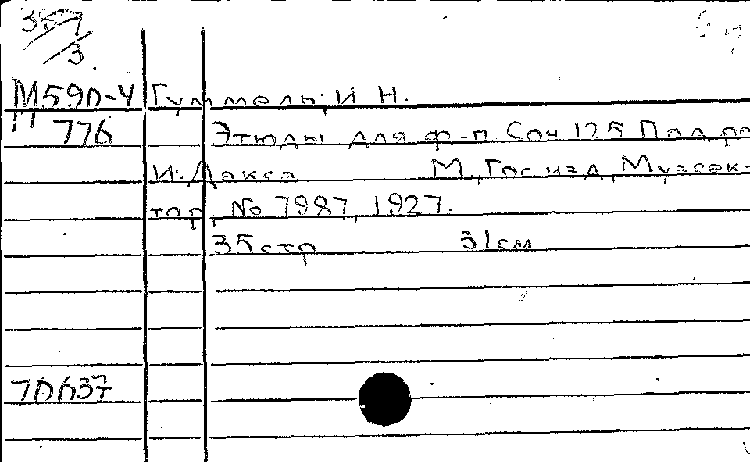 357/3
М590-4 Гуммель, И. Н.
776 Этюды для ф-п. Соч 125 Под ро
И. Лакса М., Гос. изд, Музсек-
тор, № 7987, 1927.
35 стр 31 см
70637